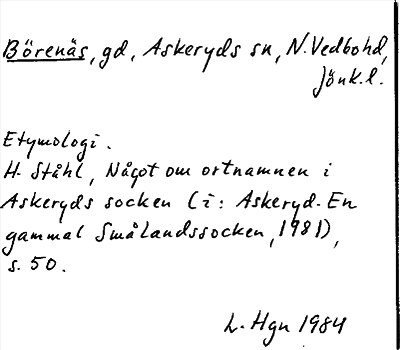 Börenäs, gd, Askeryds sn, N. Vedbohd,
Jönk.l.
Etymologi.
H. Ståhl, Något om ortnamnen i
Askeryds socken (i: Askeryd. En
gammal Smålandssocken, 1981),
s. 50.
L. Hgn 1984